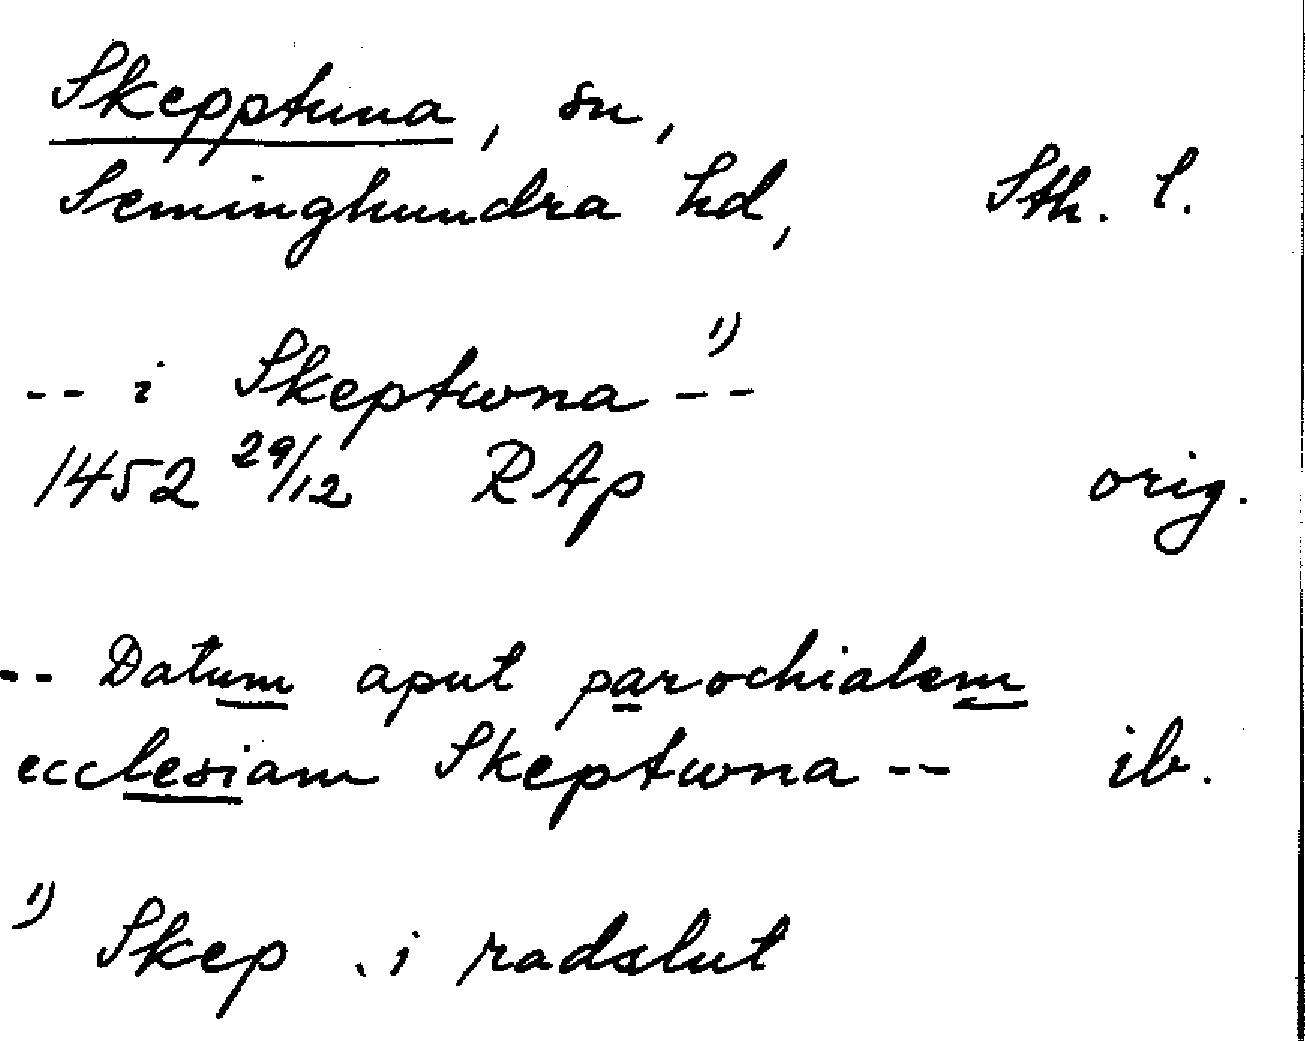 Skepptuna, sn,
Seminghundra hd, Sth. l.
-- i Skeptwna 1) --
1452 29/12 RAp orig.
-- Datum aput parochialem
ecclesiam Skeptwna -- ib.
1) Skep . i radslut